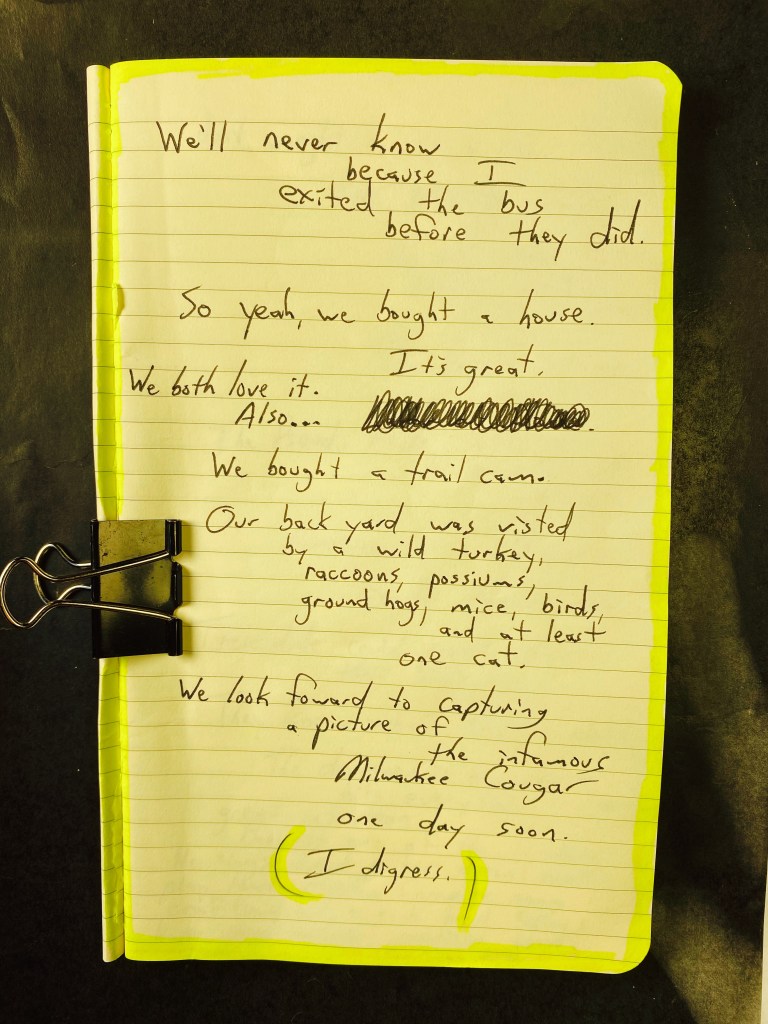 We'll never know
because I
exited the bus
before they did.
So yeah, we bought a house.
It's great.
We both love it.
Also...
We bought a trail cam.
Our back yard was visted
by a wild turkey,
raccoons, possiums,
ground hogs, mice, birds,
and at least
one cat.
We look foward to capturing
a picture of
the infamous
Milwaukee Cougar
one day soon.
(I digress.)